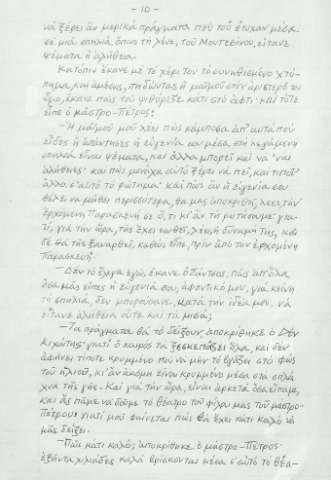 - 10 -
νά ξέρει ἄν μερικά πράγματα πού τοῦ ἔτυχαν μέσα
σέ μιά σπηλιά, ὅπως τή λένε, τοῦ Μοντεσίνου, εἴτανε
ψέματα ἤ ἀλήθεια.
Κατόπιν ἔκανε μέ τό χέρι του τό συνηθισμένο χτύ-
πημα, καί ἀμέσως, πηδώντας ἡ μαϊμού στόν ἀριστερό του
ὦμο, ἔκανε πώς τοῦ ψιθύριζε κάτι στό ἀφτί· καί τότε
εἶπε ὁ μάστρο-Πέτρος:
-Ἡ μαϊμού μου λέει πώς κάμποσα ἀπ' αὐτά πού
εἶδες ἤ ἀπάντησες ἡ εὐγενία σου μέσα στή
σπηλιά εἶναι ψέματα, καί ἄλλα μπορεῖ καί νά 'ναι
ἀλήθεια· καί πώς μονάχα αὐτό ξέρει νά πεῖ, καί τίποτ'
ἄλλο, σ' αὐτό τό ρώτημα· καί πώς ἄν ἡ εὐγενία σου
θέλει νά μάθει περισσότερα, θά μᾶς ἀποκριθῆ, λέει, τήν
ἐρχομένη Παρασκευή σέ ὅ,τι κι ἄν τή ρωτήσουμε· για-
τί, γιά τήν ὥρα, τῆς ἔχει σωθεῖ, λέει, ἡ δύναμή της, καί
δέ θά τῆς ξαναρθεῖ, καθώς εἶπε, πρίν ἀπό τήν ἐρχομένη
Παρασκευή.
-Δέν τό ἔλεγα ἐγώ, ἔκανε ὁ Πάντσας, πώς ἀπ' ὅλα
ὅσα μᾶς εἶπες ἡ εὐγενία σου, ἀφεντικό μου, γιά κείνη
τή σπηλιά, δέν μποροῦσανε, κατά τήν ἰδέα μου, νά
εἴτανε ἀλήθεια οὔτε καί τά μισά;
-Τά πράγματα θά τό δείξουν ἀποκρίθηκε ὁ Δόν
Κιχώτης· γιατί ὁ καιρός τά ξεσκεπάζει ὅλα, καί δέν
ἀφήνει τίποτε κρυμμένο πού νά μήν τό βγάζει στό φῶς
τοῦ ἥλιου, κι ἄν ἀκόμη εἶναι κρυμμένο μέσα στά σπλά-
χνα τῆς γῆς. Καί γιά τήν ὥρα, εἶναι ἀρκετά ὅσα εἴπαμε,
καί ἄς πᾶμε νά δοῦμε τό θέατρο τοῦ φίλου μας τοῦ μάστρο-
Πέτρου· γιατί μοῦ φαίνεται πώς θά ἔχει κάτι καλό νά
μᾶς δείξει.
-Πῶς κάτι καλό; ἀποκρίθηκε ὁ μάστρο-Πέτρος·
ἑξήντα χιλιάδες καλά βρίσκονται μέσα σ' αὐτό τό θέα-